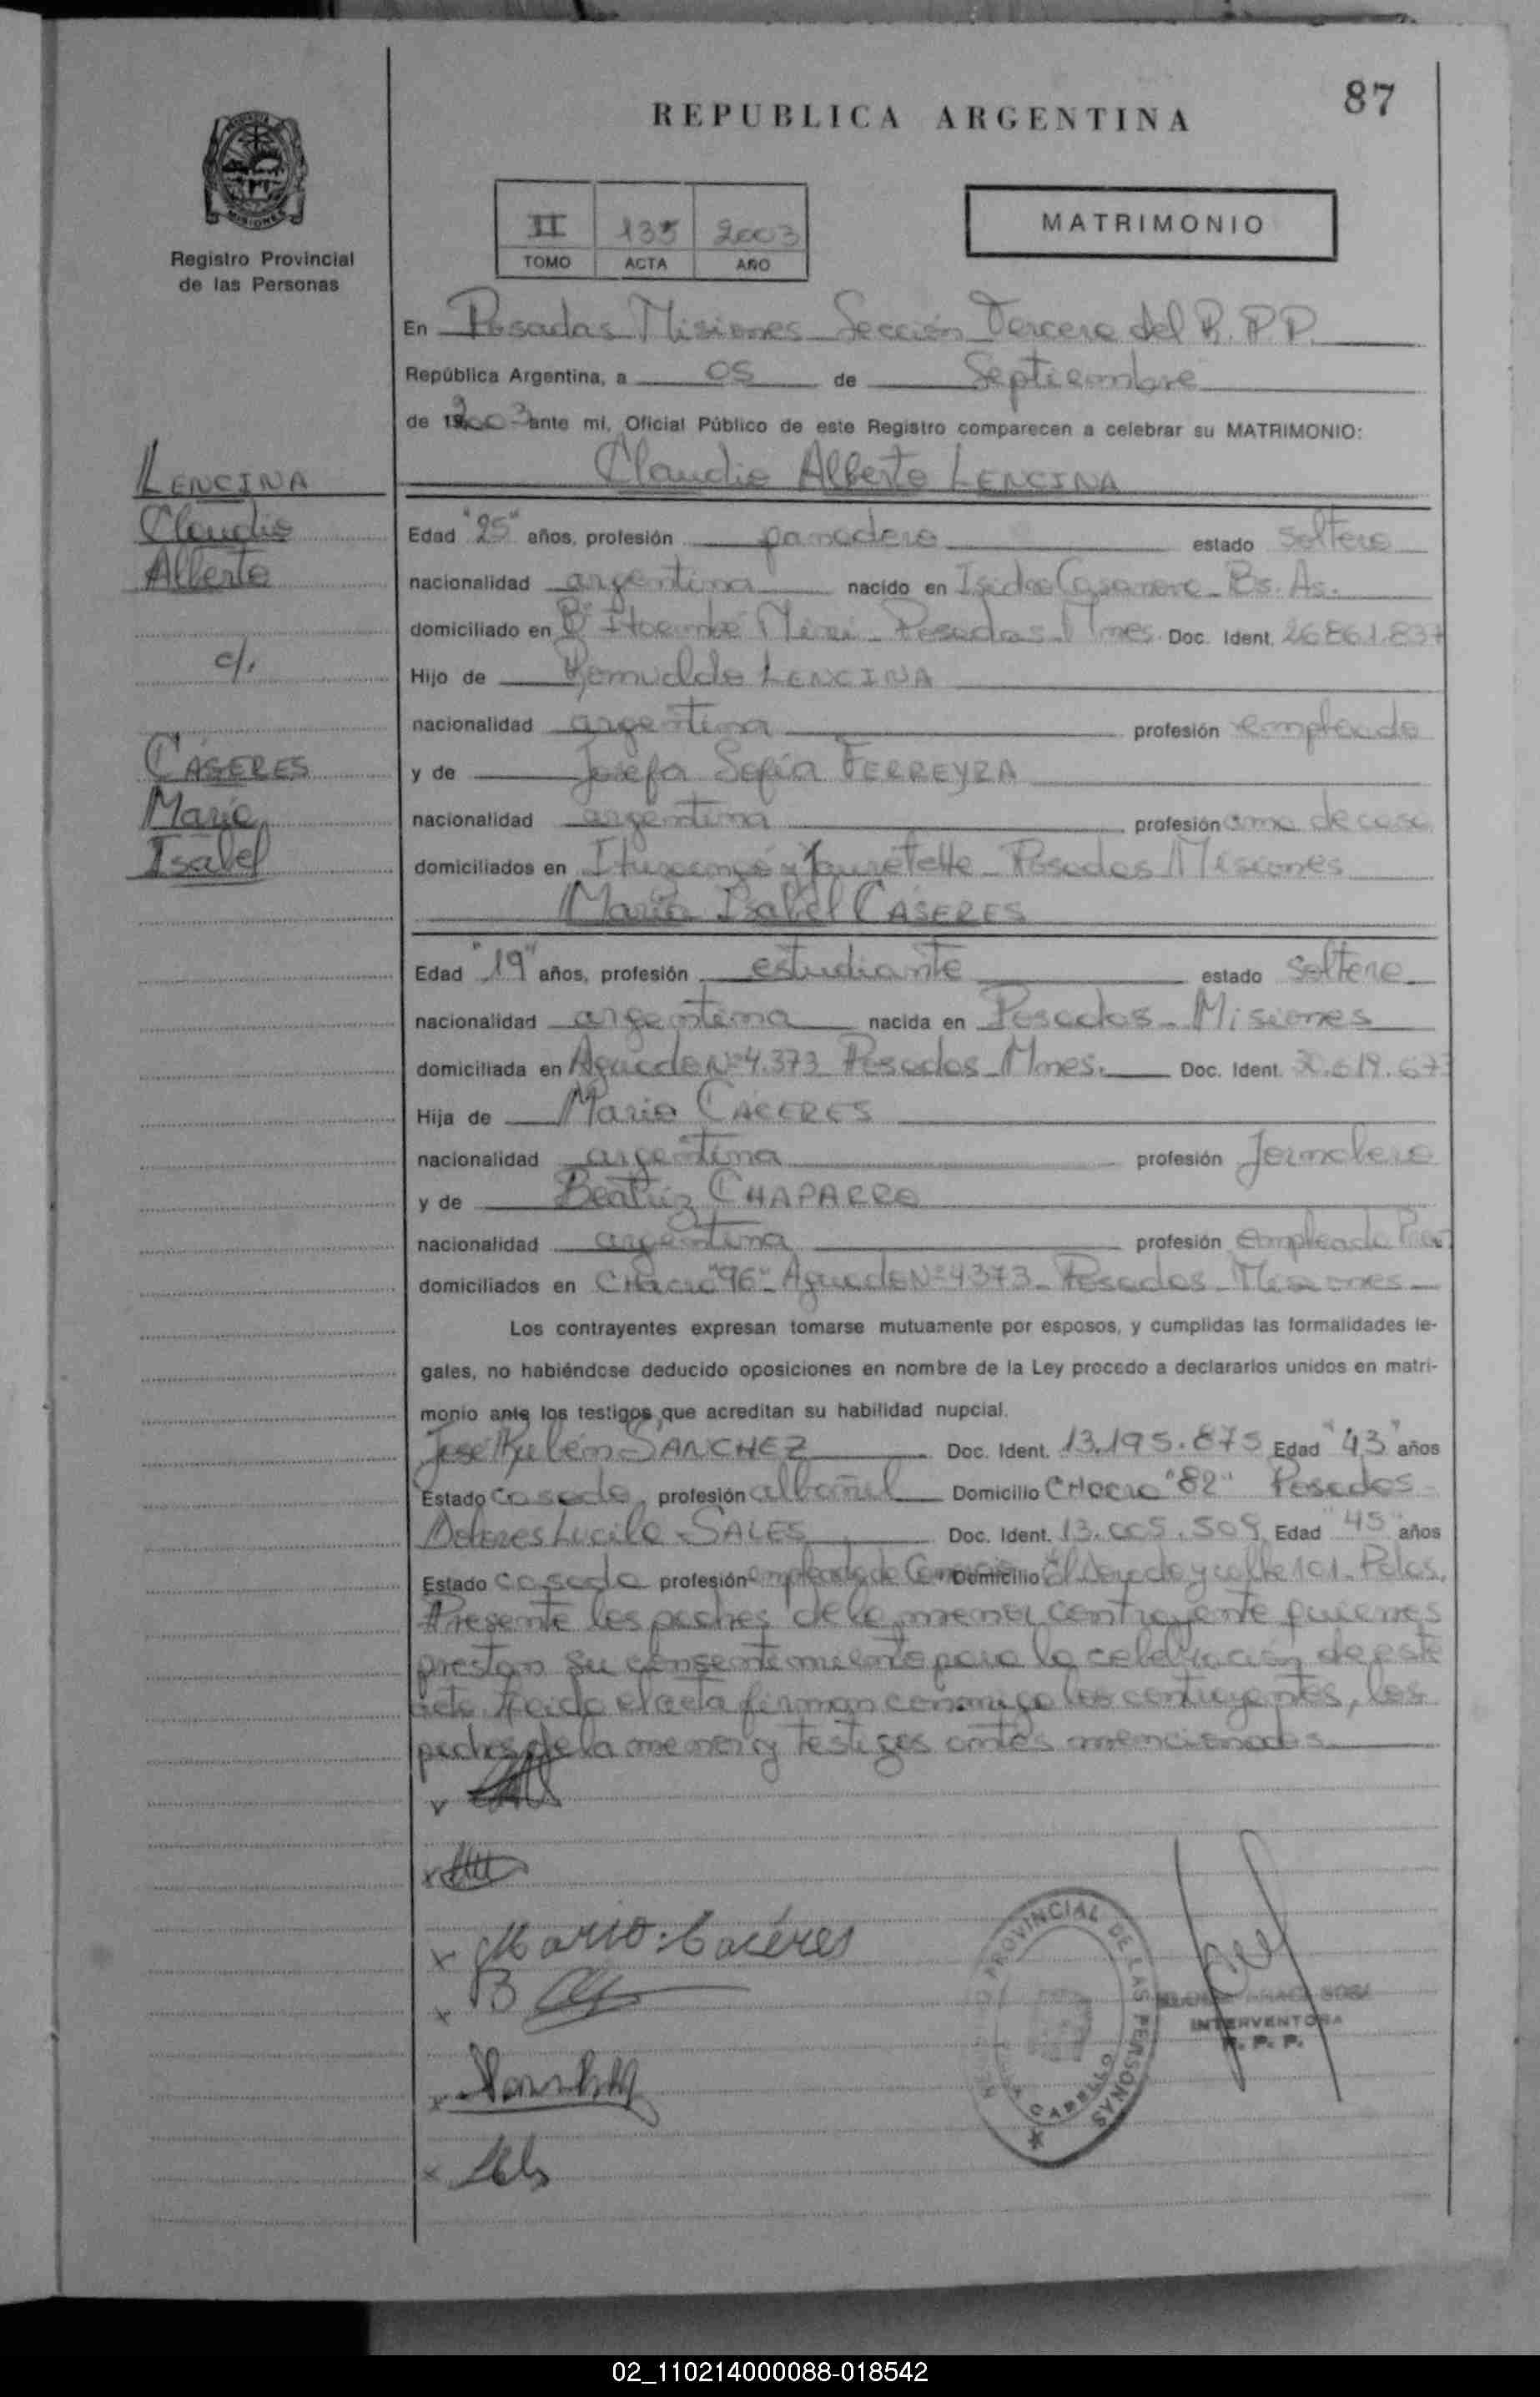 87
REPUBLICA ARGENTINA
MISIONES
Registro Provincial
de las Personas
II 135 2003
TOMO ACTA AÑO
MATRIMONIO
En Posadas Misiones Sección Tercera del R.P.P.
República Argentina, a 05 de Septiembre
de 2003 ante mi, Oficial Público de este Registro comparecen a celebrar su MATRIMONIO:
Claudio Alberto LENCINA
LENCINA
Claudio
Alberto
c/.
CASERES
María
Isabel
Edad "25" años, profesión panadero estado soltero
nacionalidad argentina nacido en Isidro Casanova - Bs. As.
domiciliado en Bº Itaembé Miní - Posadas Mnes. Doc. Ident. 26.861.837
Hijo de Romualdo LENCINA
nacionalidad argentina profesión empleado
y de Josefa Sofía FERREYRA
nacionalidad argentina profesión ama de casa
domiciliados en y Jauretche - Posadas Misiones
María Isabel CASERES
Edad "19" años, profesión estudiante estado soltera
nacionalidad argentina nacida en Posadas - Misiones
domiciliada en Aguado Nº 4.373 Posadas - Mnes. Doc. Ident. 30.619.673
Hija de Mario CACERES
nacionalidad argentina profesión Jornalero
y de Beatriz CHAPARRO
nacionalidad argentina profesión empleada
domiciliados en CHacra "96" - Aguado Nº 4373 - Posadas - Misiones
Los contrayentes expresan tomarse mutuamente por esposos, y cumplidas las formalidades le-
gales, no habiéndose deducido oposiciones en nombre de la Ley procedo a declararlos unidos en matri-
monio ante los testigos que acreditan su habilidad nupcial.
José Rubén SANCHEZ Doc. Ident. 13.195.875 Edad "43" años
Estado casado profesión albañil Domicilio CHacra "82" Posadas
Dolores Lucila SALES Doc. Ident. 13.005.509 Edad "45" años
Estado casada profesión empleada de Comercio Domicilio El Dorado y calle 101 - Pdas.
Presente los padres de la menor contrayente quienes
prestan su consentimiento para la celebración de este
acto. Leida el acta firman conmigo los contrayentes, los
padres de la menor y testigos antes mencionados
x
x
x Mario Caceres
x B
x
x
PROVINCIAL DE LAS PERSONAS
CABELLO
SOSA
INTERVENTORA
R. P. P.
02_110214000088-018542